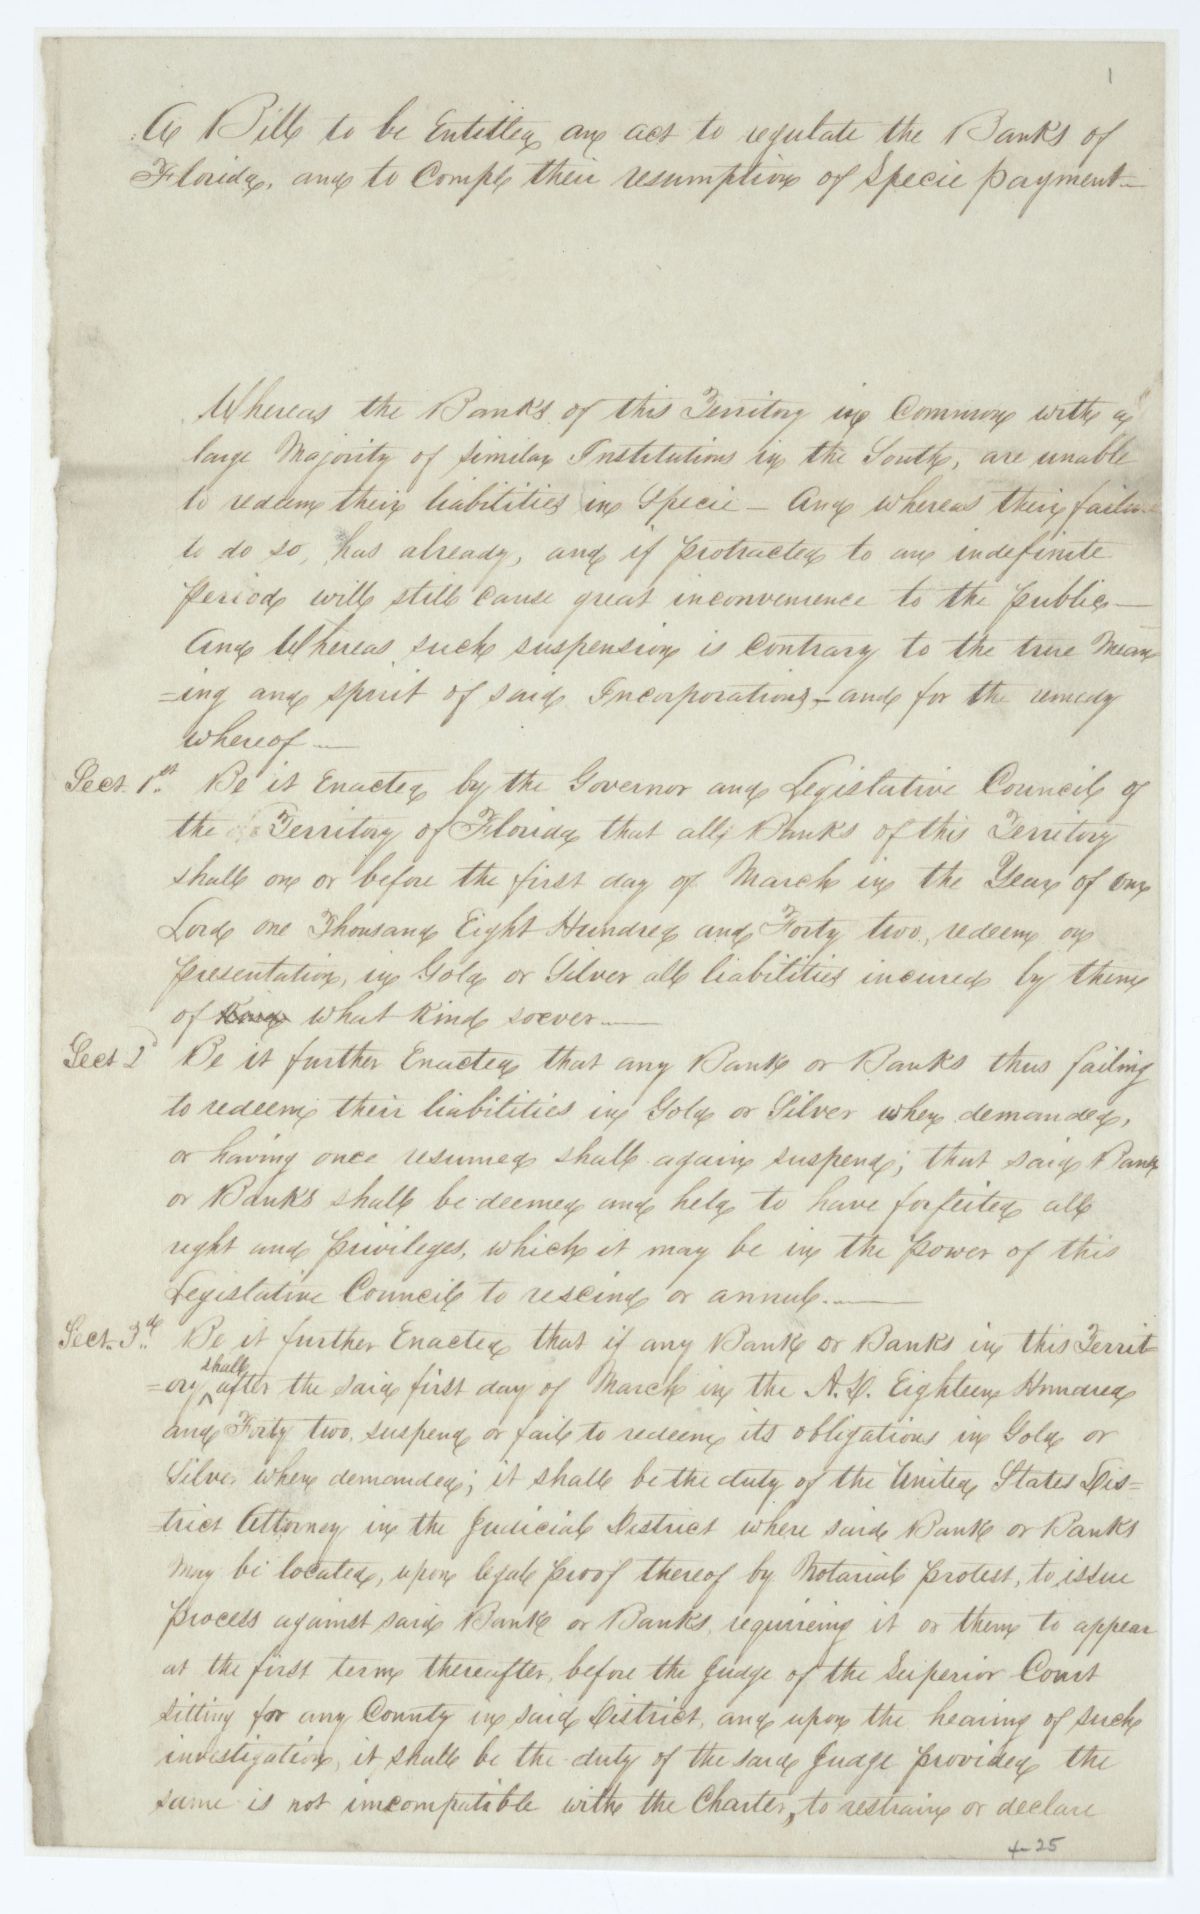 1
A Bill to be Entitled an act to regulate the Banks of
Florida, and to Compl their resumption of Specie payment—
Whereas the Banks of this Territory in Common with a
large Majority of similar Institutions in the South, are unable
to redeem their liabilities in Specie — And whereas their failure
to do so, has already, and if protracted to an indefinite
period will still cause great inconvenience to the public—
And Whereas such suspension is contrary to the true Mean
=ing and spirit of said Incorporations — and for the remedy
whereof —
Sect. 1st. Be it Enacted by the Governor and Legislative Council of
the Territory of Florida that all Banks of this Territory
shall on or before the first day of March in the Year of Our
Lord one Thousand Eight Hundred and Forty two, redeem on
presentation, in Gold or Silver all liabilities incured by them
of Kind what Kind soever —
Sect 2d Be it further Enacted that any Bank or Banks thus failing
to redeem their liabilities in Gold or Silver when demanded,
or having once resumed shall again suspend; that said Bank
or Banks shall be deemed and held to have forfeited all
right and privileges, which it may be in the power of this
Legislative Council to rescind or annul. —
Sect. 3d. Be it further Enacted that if any Bank or Banks in this Territ-
=ory shall after the said first day of March in the A.D. Eighteen Hundred
and Forty two, suspend or fail to redeem its obligations in Gold or
Silver when demanded; it shall be the duty of the United States Dis=
=trict Attorney in the Judicial District where said Bank or Banks
may be located, upon legal proof thereof by Notarial protest, to issue
process against said Bank or Banks, requireing it or them to appear
at the first term thereafter, before the Judge of the Superior Court
sitting for any County in said District, and upon the hearing of such
investigation, it shall be the duty of the said Judge provided the
same is not imcompatible with the Charter, to restrain or declare
4-25